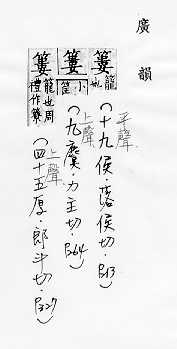 廣韻
簍 籠也
平聲
(十九侯．落侯切．P213)
簍 小筐
上聲
(九麌．力主切．P264)
簍 籠也周禮作簝
上聲
(四十五厚．郎斗切．P327)